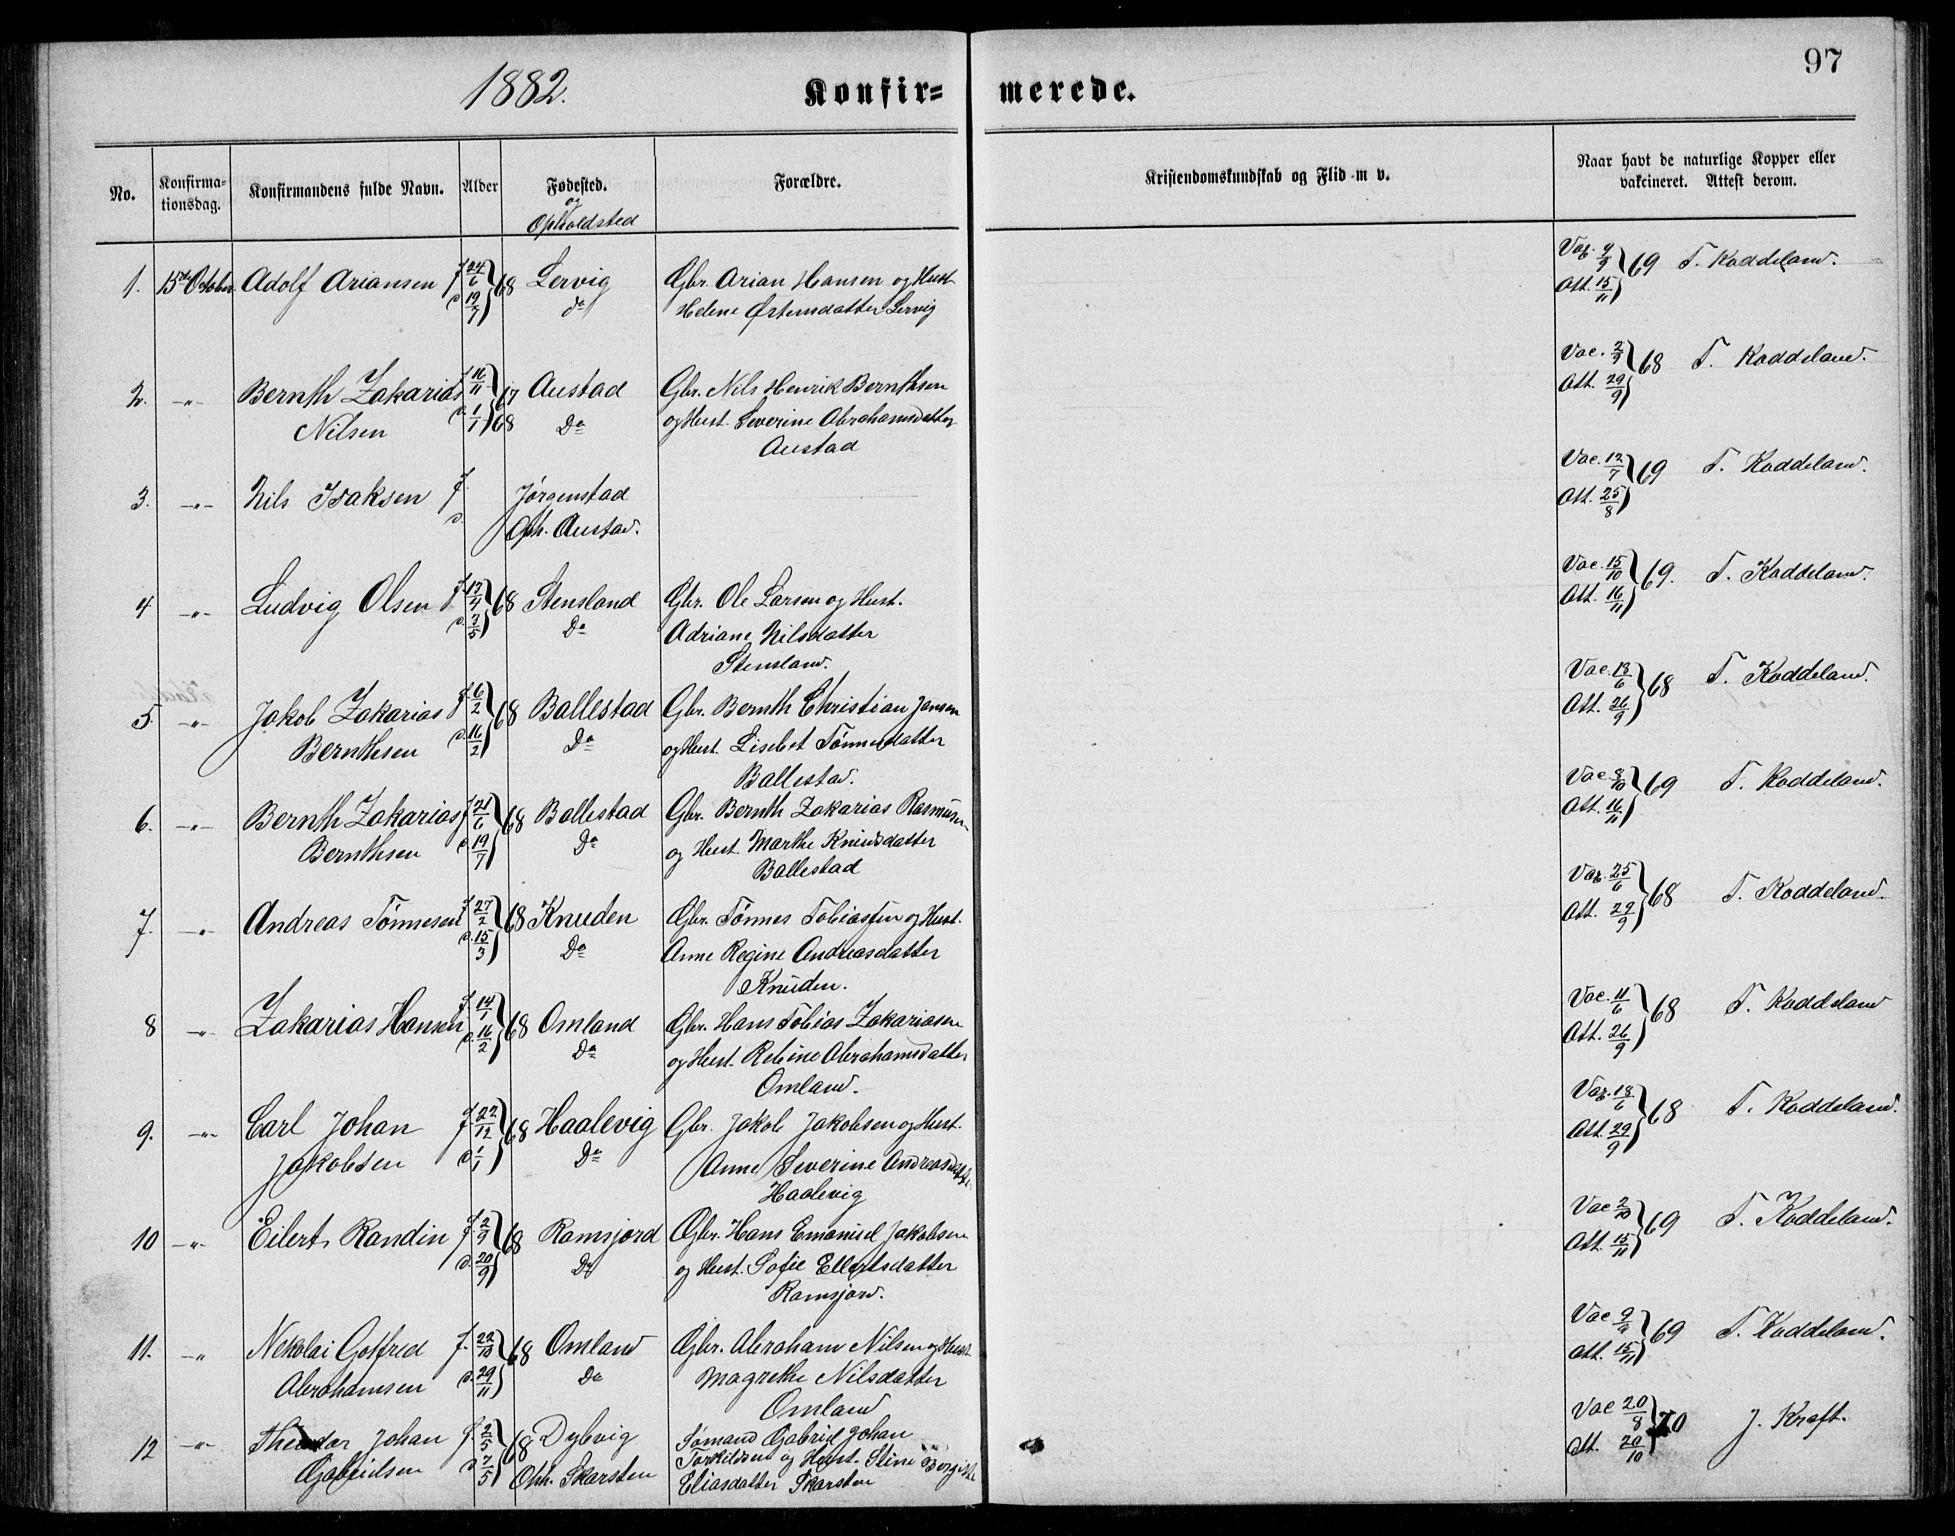 97
1882.
Konfir= merede.
No.
Konfirma-
tionsdag.
Konfirmandens fulde Navn.
Alder
Fødested.
og
Opholdsted
Forældre.
Kristendomskundskab og Flid m v.
Naar havt de naturlige Kopper eller
vakcineret. Attest derom.
1. 15de October Adolf Ariansen f 24/6 68 Lervig Gbr. Arian Hansen og Hust Vac. 9/9 69 T. Koddeland.
d 19/7 do Helene Østensdatter Lervig Att. 15/11
2. -"- Bernth Zakarias f 16/11 67 Austad Gbr. Nils Henrik Bernthsen Vac. 2/9 68 T. Koddeland.
Nilsen d. 1/1 68 Do og Hust. Severine Abrahamsdatter Att. 29/9
Austad
3. -"- Nils Isaksen f. Jørgenstad Vac. 12/7 69 T. Koddeland.
d. Oph. Austad. Att. 25/8
4 -"- Ludvig Olsen f. 17/4 68 Stensland Gbr. Ole Larsen og Hust. Vac. 15/10 69. T. Koddeland.
d. 7/5 Do Adriane Nilsdatter Att. 16/11
Stensland.
5 -"- Jakob Zakarias f. 6/2 68 Ballestad Gbr. Bernth Christian Jansen Vac. 18/6 68 T. Koddeland.
Bernthsen d. 16/2 Do og Hust. Lisebet Tønnesdatter Att. 26/9
Ballestad.
6. -"- Bernth Zakarias f. 21/6 68 Ballestad Gbr. Bernth Zakarias Rasmusen Vac. 8/10 69 T. Koddeland.
Bernthsen d. 19/7 Do og Hust. Marthe Knudsdatter Att. 16/11
Ballestad
7. -"- Andreas Tønnesen f. 27/2 68 Knuden Gbr. Tønnes Tobiassen og Hust. Vac. 25/6 68 T. Koddeland.
d. 15/3 Do Anne Regine Andreasdatter Att. 29/9
Knuden.
8 -"- Zakarias Hansen f. 14/1 68 Omland Gbr. Hans Tobias Zakariasen Vac. 11/6 68 T. Koddeland
d. 16/2 Do og Hust. Abrahamsdatter Att. 26/9
Omland.
9. -"- Carl Johan f. 22/12 68 Haalevig Gbr. Jakob Jakobsen og Hust. Vac. 18/6 68 T. Koddeland.
Jakobsen d. 1/1 Do Anne Severine Andreasdatter Att. 29/9
Haalevig
10 -"- Eilert Randin f. 2/9 68 Ramsjord Gbr. Hans Emanuel Jakobsen Vac 2/10 69 T. Koddeland.
d. 20/9 Do og Hust. Sofie Ellertsdatter Att. 15/11
Ramsjord.
11. -"- Nikolai Gotfred f. 22/10 68 Omland Gbr. Abraham Nilsen og Hust. Vac 9/9 69 T. Koddeland.
Abrahamsen d. 29/11 Do Magrethe Nilsdatter Att. 15/11
Omland
12 -"- Theodor Johan f. 2/5 68 Dybvig Sømand Gabriel Johan Vac 20/8 70 J. Kraft.
Gabrielsen d 7/5 Oph. Skarsten Torkildsen og Hust. Stine Att. 20/10
Eliasdatter Skarsten